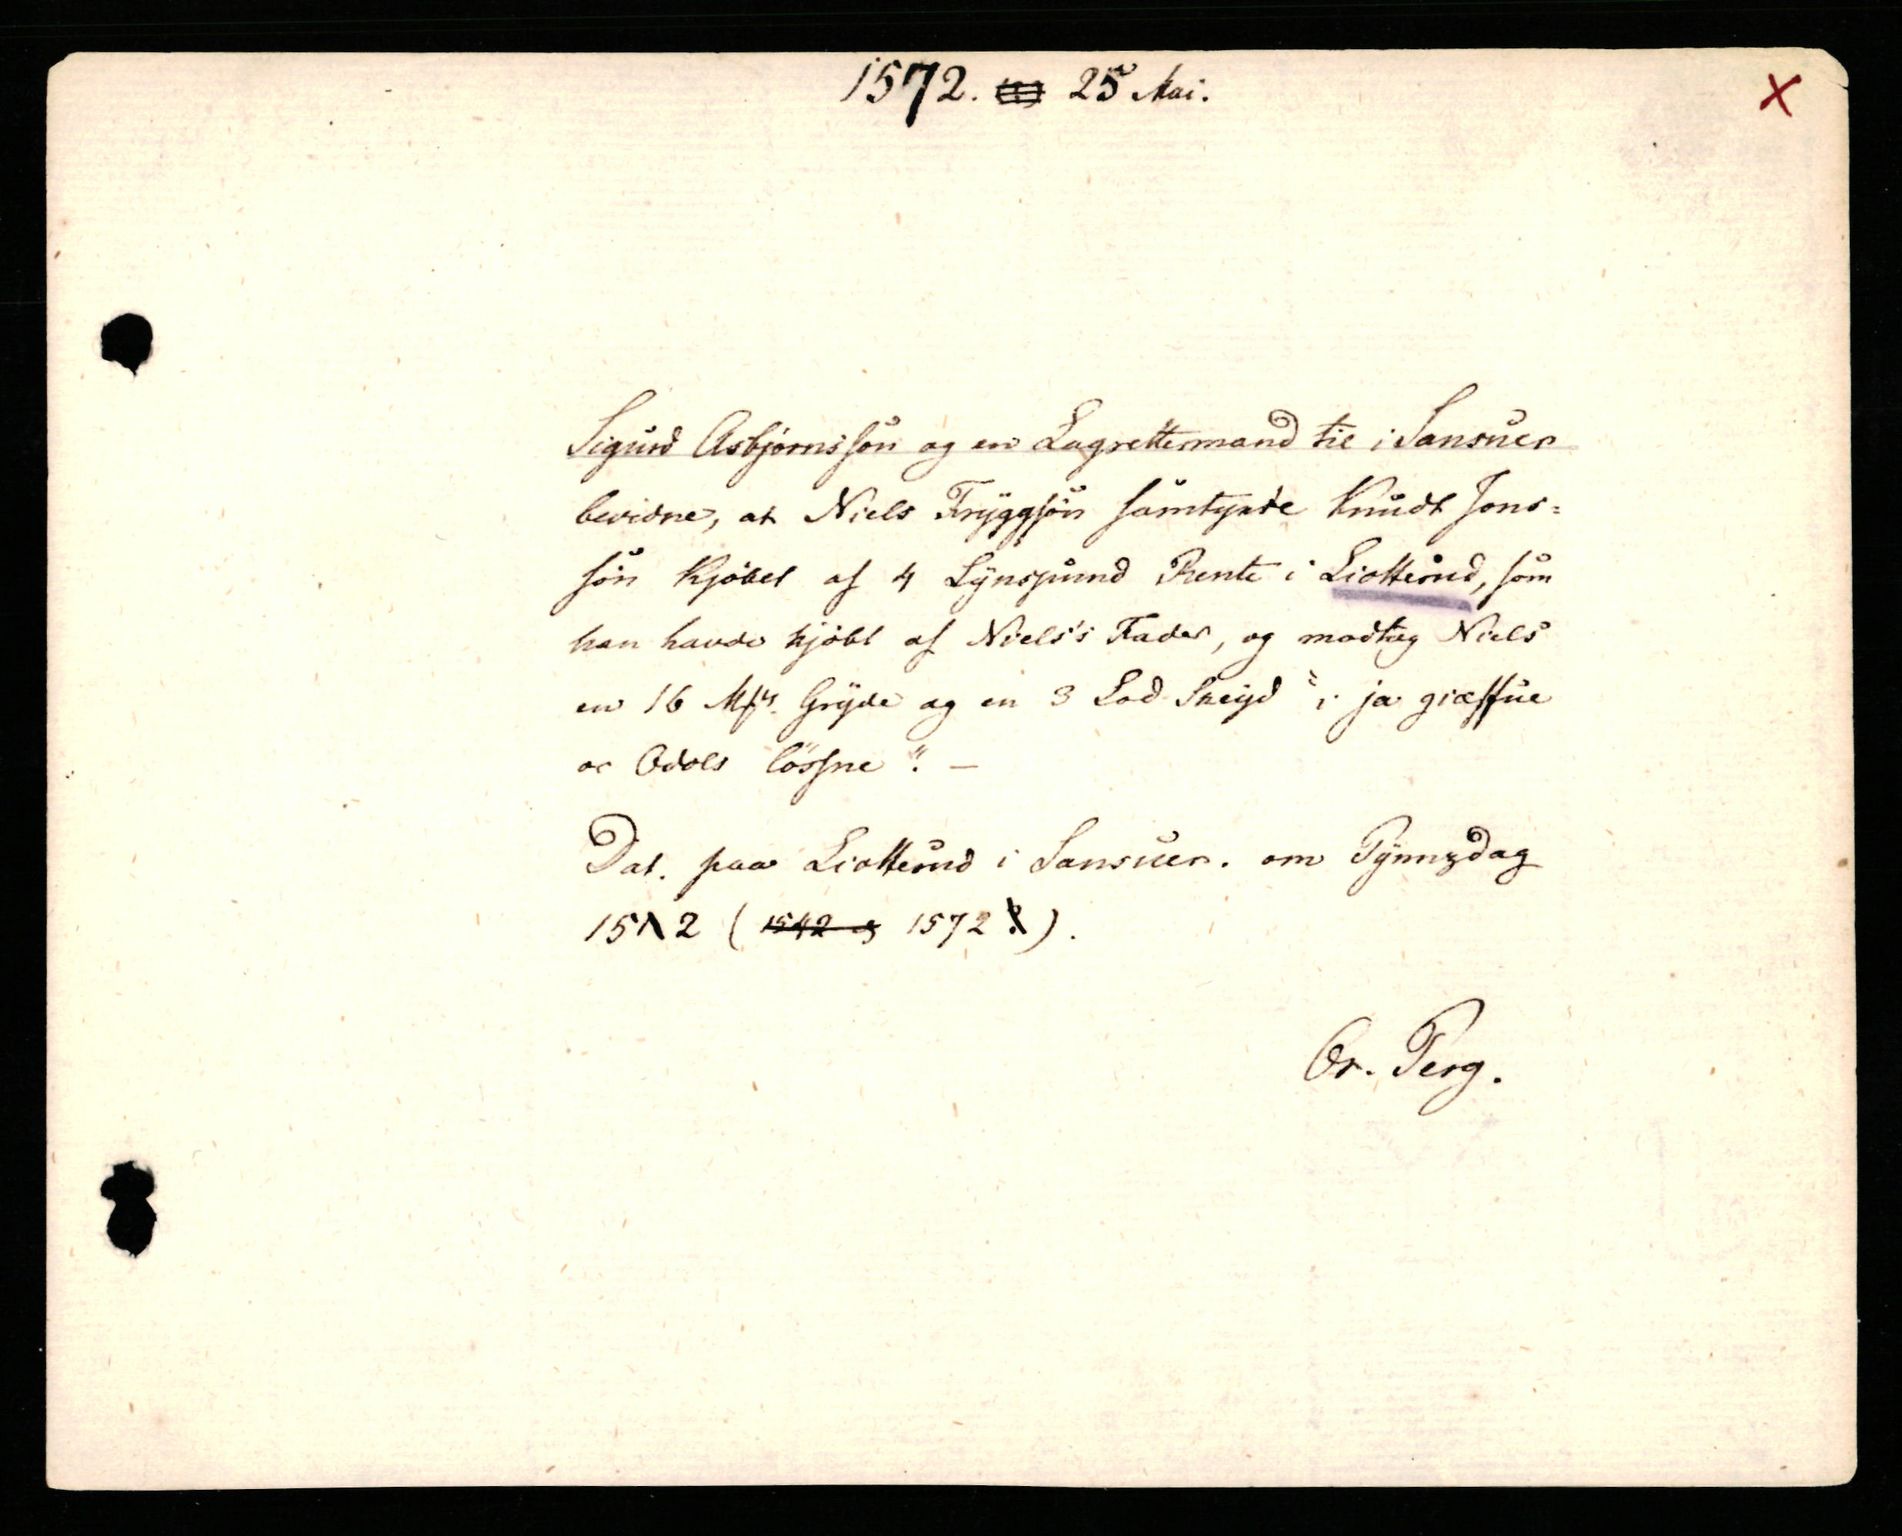 1572. 25 Mai.
x
Sigurd Asbjørnssøn og en Lagrettemand til i Sansuer
bevidne, at Niels Tryggsøn samtykte Knudt Jons=
søn Kjøbet af 4 Lynspund Rente i Liotterud, som
han havde kjøbt af Niels's Fader, og modtog Niels
en 16 Mks. Gryde og en 3 Lod Skeyd "i ja giæffue
oc Odols løssne". —
Dat. paa Liotterud i Sansuer. om Pynnzdag
15/\2 (1542 og 1572).
Or. Perg.